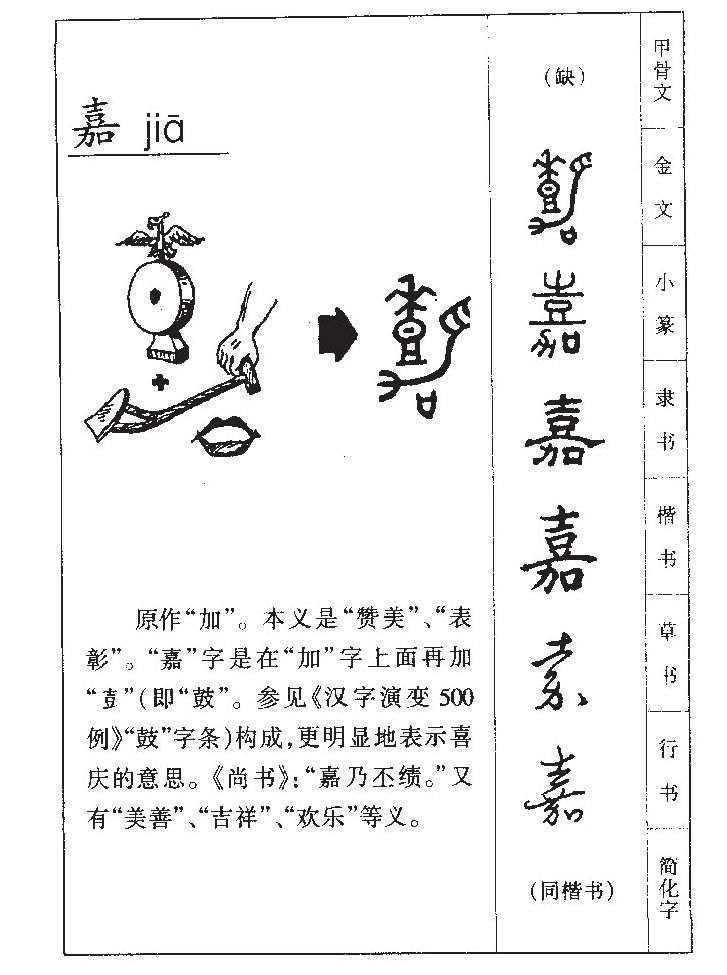 嘉 jiā
原作“加”。本义是“赞美”、“表
彰”。“嘉”字是在“加”字上面再加
“壴”(即“鼓”。参见《汉字演变500
例》“鼓”字条)构成,更明显地表示喜
庆的意思。《尚书》:“嘉乃丕绩。”又
有“美善”、“吉祥”、“欢乐”等义。
(缺)
甲骨文
嘉
金文
嘉
小篆
嘉
隶书
嘉
楷书
嘉
草书
嘉
行书
(同楷书)
简化字